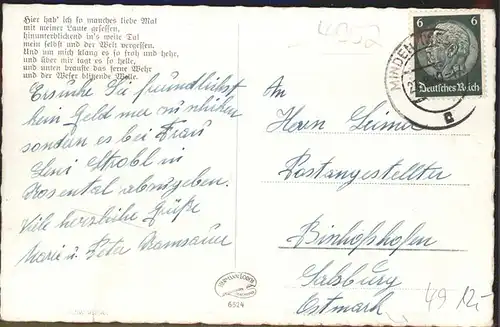 Hier hab' ich so manches liebe Mal
mit meiner Laute gesessen,
hinunterblickend in's weite Tal
mein selbst und der Welt vergessen.
Und um mich klang es so froh und hehr,
und über mir tagt es so helle,
und unten brauste das ferne Wehr
und der Weser blitzende Welle.
Ersuche Sie freundlichst
kein Geld mer zu schiken
sondern es bei Frau
Leni Strobl in
Rosental abzugeben.
Viele herzliche Grüße
Marie u. Peter Ramsauer
6824
6 6
Deutsches Reich
MINDEN
An
Herrn
Postangestellter
Bischofshofen
Salzburg
Ostmark
49 12,-